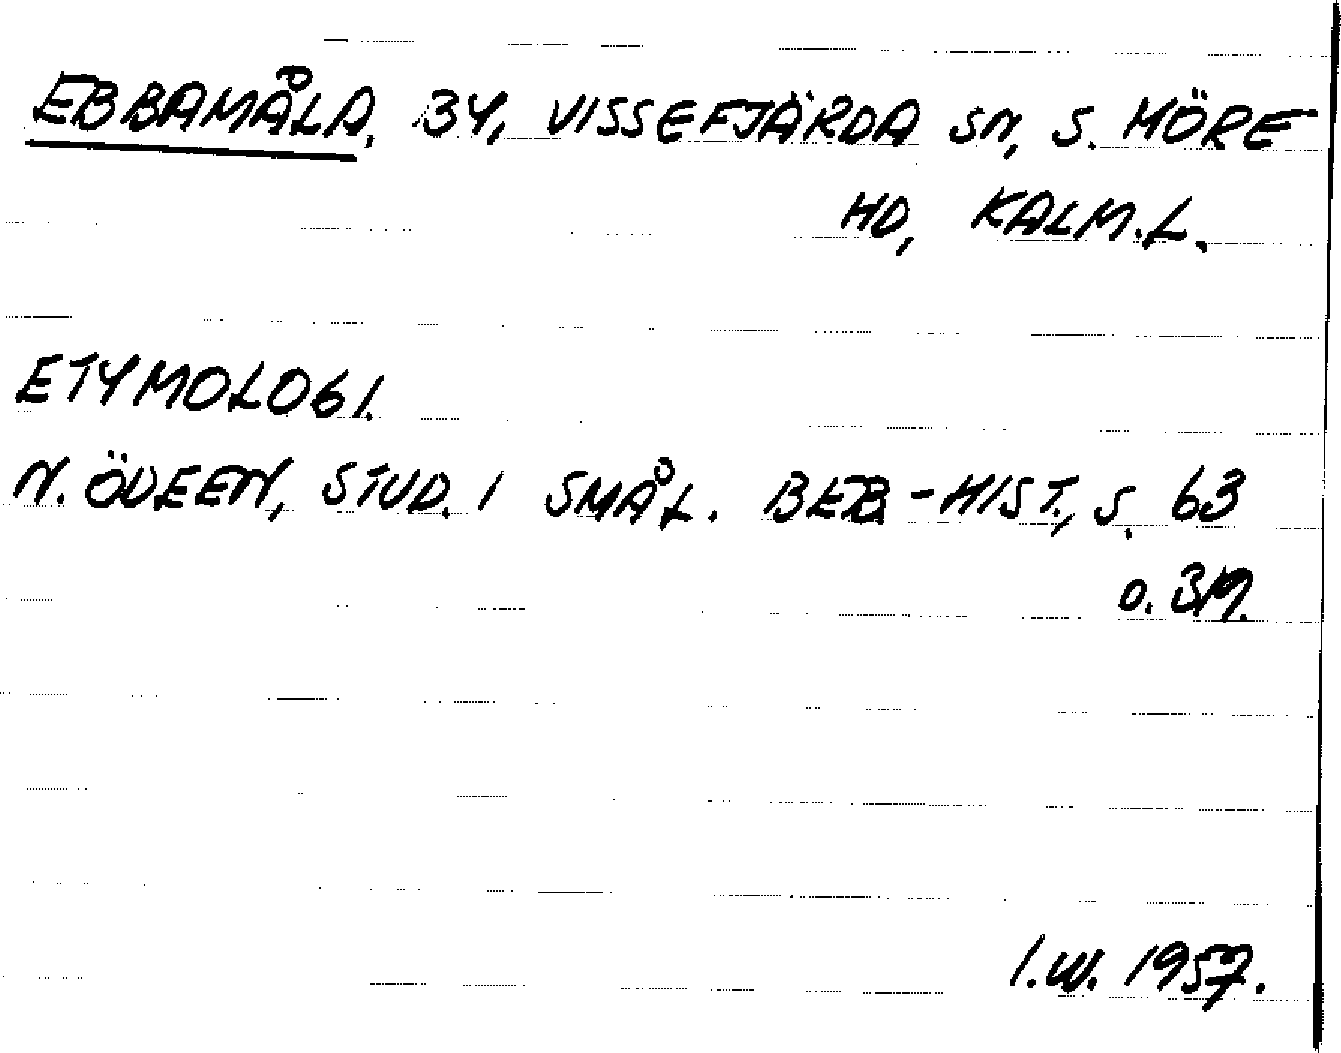 EBBAMÅLA, BY, VISSEFJÄRDA SN, S. MÖRE
HD, KALM.L.
ETYMOLOGI.
N. ÖDEEN, STUD. I SMÅL. BEB-HIST., S. 63
O. BM.
I.W. 1957.